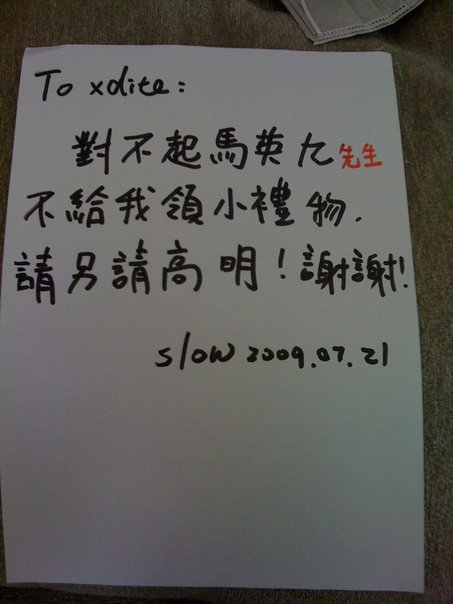 To xdite:
對不起馬英九先生
不給我領小禮物.
請另請高明!謝謝!
slow 2009.07.21